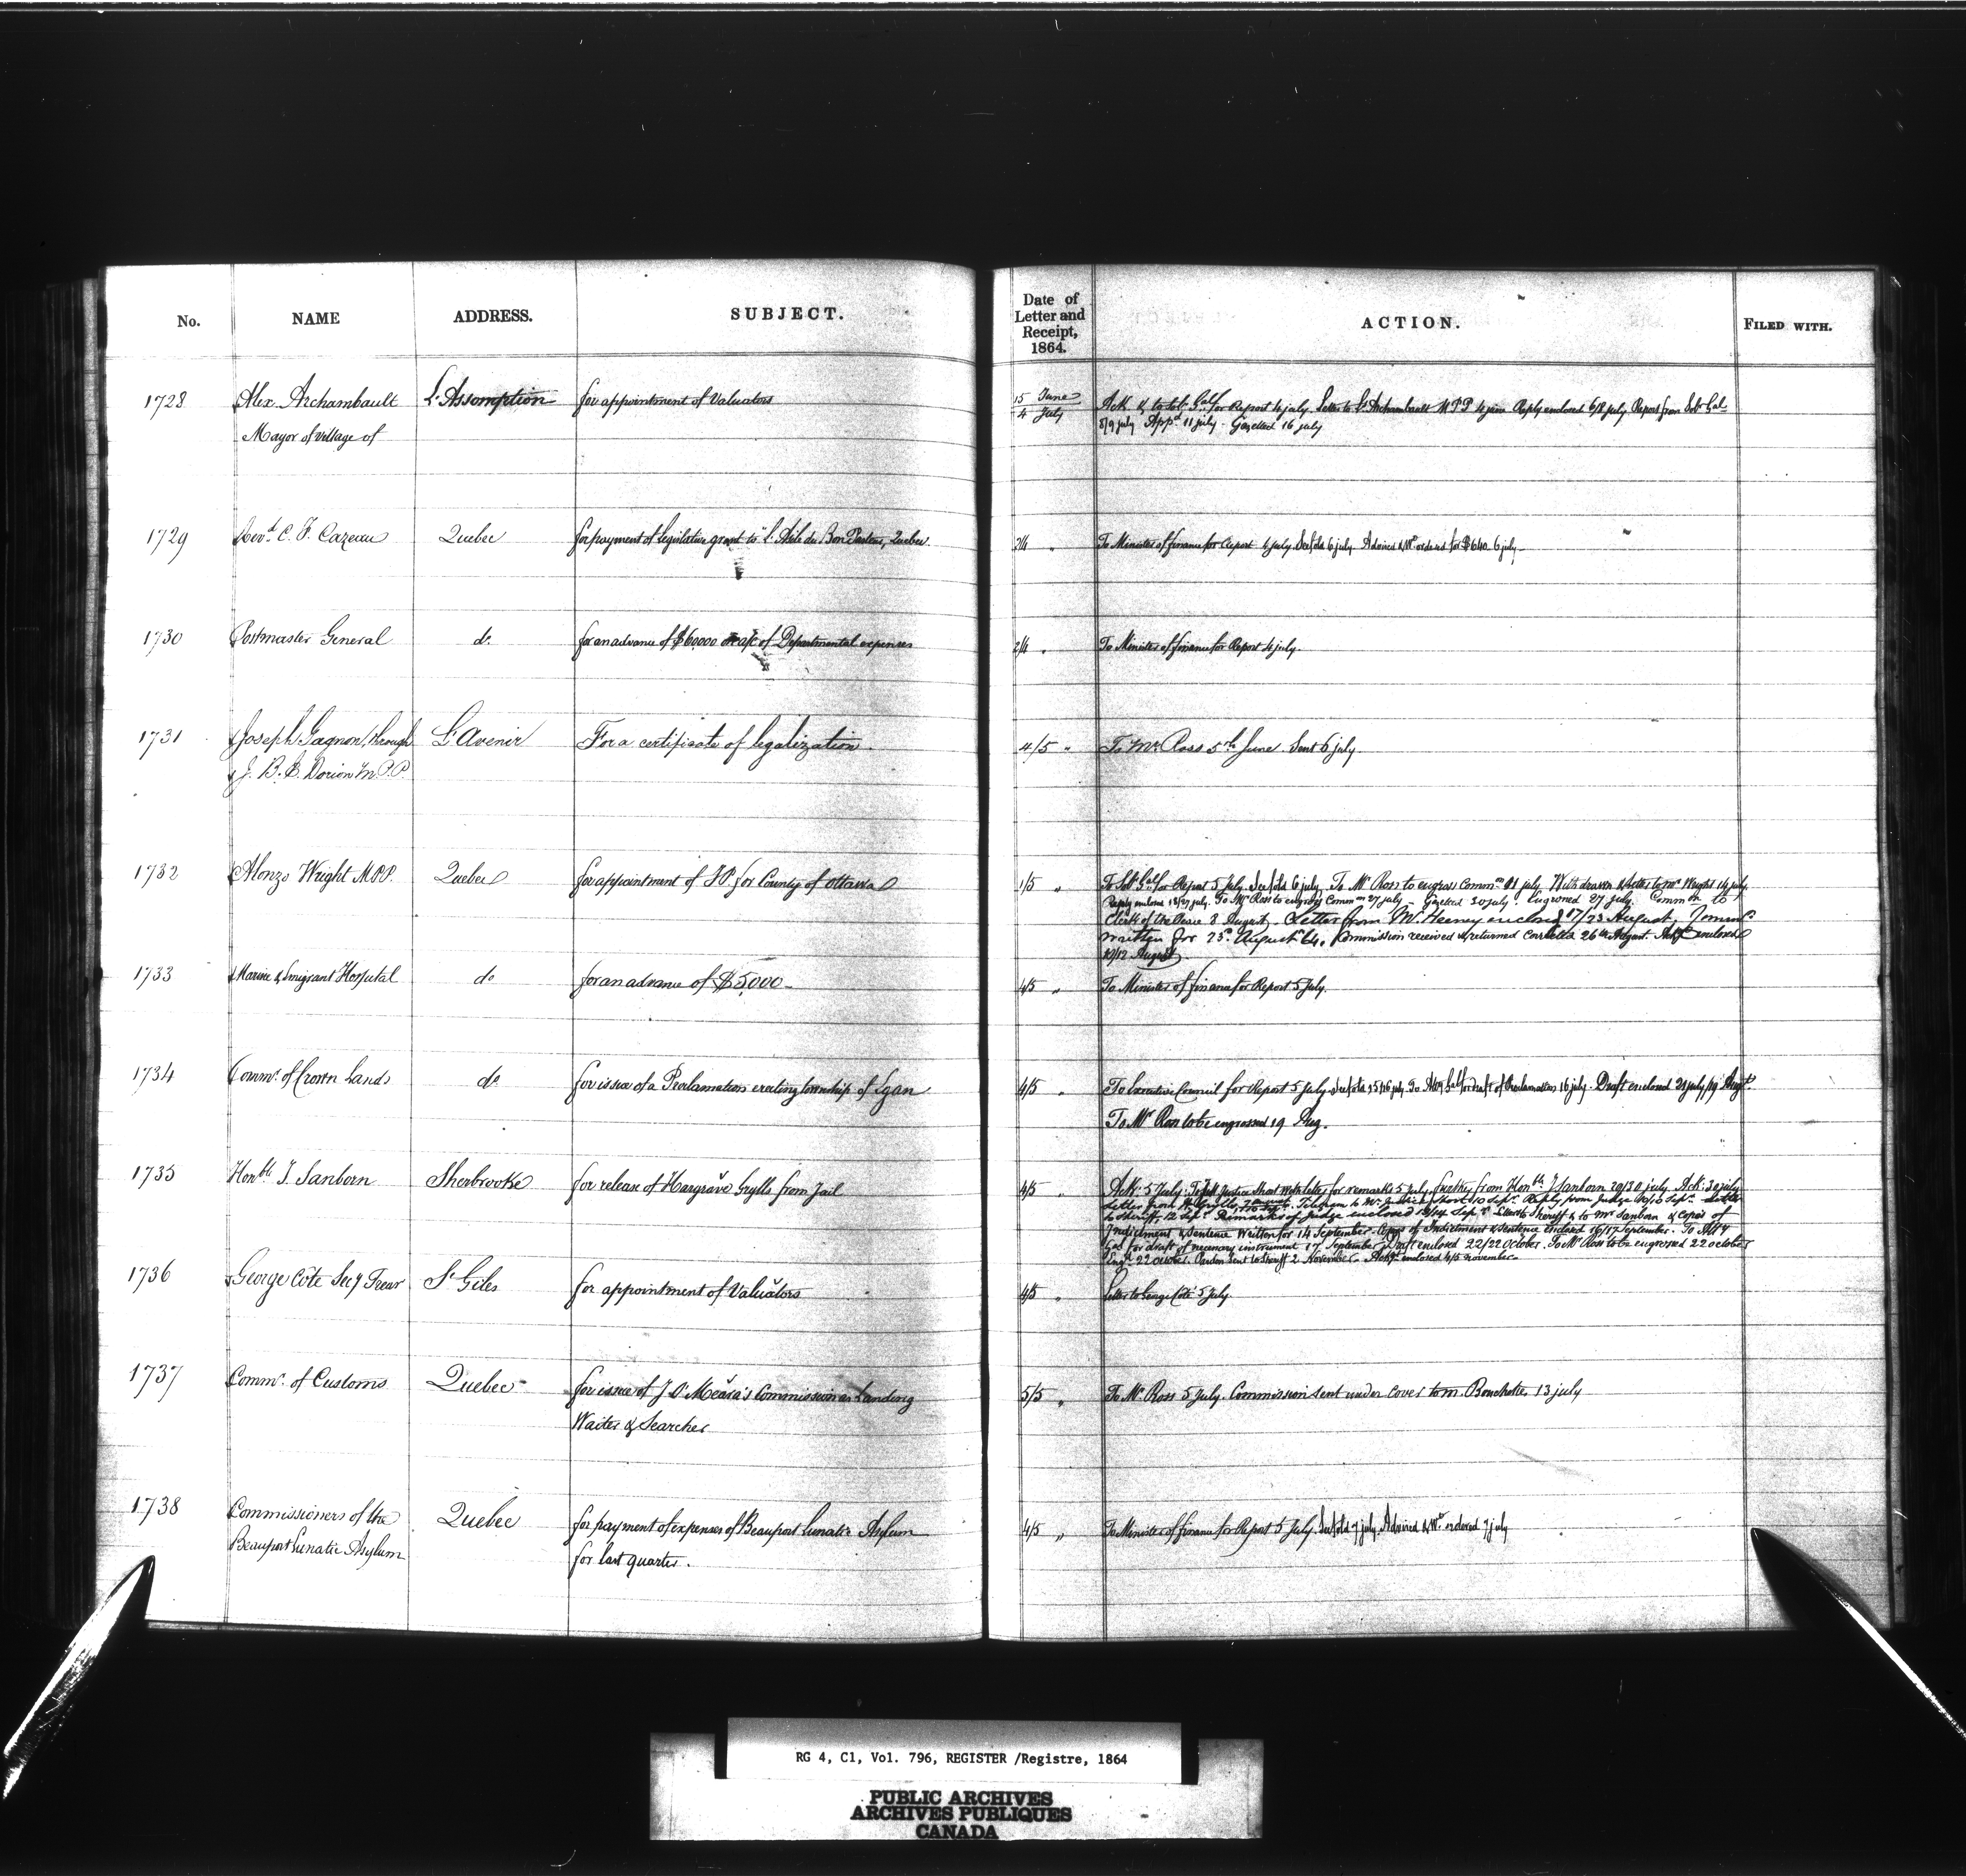 No. NAME ADDRESS. SUBJECT.
Date of Letter and Receipt, 1864. ACTION. FILED WITH.
1728 Alex. Archambault L'Assomption for appointment of Valuators
Mayor of village of
15 June
4 July
Ack. & to Solr Genl for Report 4 july. Letter to Archambault M.P.P. Reply enclosed 6/8 july Report from Solr Gal
8/9 july Appd 11 july - Gazetted 16 july
1729 Revd C. F. Cazeau Quebec for payment of legislative grant to "L'Asile du Bon Pasteur, Quebec.
2/4 " To Minister of finance for Report 4 july. See fold 6 july. Advised & Wt ordered for $640. 6 july
1730 Postmaster General do for an advance of $60000 on a/c of Departmental expenses
2/4 " To Minister of finance for Report 4 july.
1731 Joseph Gagnon, through L'Avenir For a certificate of legalization
J. B. E. Dorion M.P.P.
4/5 " To Mr. Ross 5th June. Sent 6 july.
1732 Alonzo Wright M.P.P. Quebec for appointment of J.P. for County of Ottawa
1/5 " To Solr Genl for Report 5 July. See fold 6 july. To Mr Ross to engross Commn 11 july. Withdrawn & letter to Mr Wright 14 july.
Reply enclosed 18/27 july. To Mr Ross to engross Commn 27 july - Gazetted 30 july. Engrossed 27 july. Commn to
Clerk of the Peace 8 August - Letter from Mr Heeney enclosed 17/23 August,
written for 23d August 64. Commission received & returned 26th August. enclosed
10/12 August
1733 Marine & Emigrant Hospital do for an advance of $5,000
4/5 " To Minister of finance for Report 5 July.
1734 Commr. of Crown Lands do for issue of a Proclamation erecting township of Egan
4/5 " To Executive Council for Report 5 July. See fold 15/16 july. To Atty Gal for draft of Proclamation 16 july. Draft enclosed 21 july/19 Augt
To Mr Ross to be engrossed 19 Aug.
1735 Honble J. Sanborn Sherbrooke for release of Hargrave Grylls from Jail
4/5 " Ack: 5 July: To Mr Justice Short with letter for remarks 5 july. further from Honble J Sanborn 29/30 july. Ack: 30 july
Letter from Grylls, Telegram to Mr Justice Short 10 Sept. Reply from Judge 10/10 Sept.
to Sheriff, 12 Sept. Remarks of Judge enclosed 12/14 Sept. Letter to Sheriff & to Mr Sanborn & Copies of
Indictment & Sentence written for 14 September. Copy of Indictment & Sentence enclosed 16/17 September. To Atty
Gal for draft of necessary instrument 17 September. Draft enclosed 22/22 October. To Mr Ross to be engrossed 22 october
Engd 22 October. Pardon sent to Sheriff 2 November. enclosed 4/5 november
1736 George Côté Secy Treasr St Giles for appointment of Valuators
4/5 " Letter to George Côté 5 July.
1737 Commr. of Customs Quebec for issue of J O'Meara's Commission as Landing
Waiter & Searcher
5/5 " To Mr Ross 5 July. Commission sent under cover to m. Bouchette, 13 july
1738 Commissioners of the Quebec for payment of expenses of Beauport Lunatic Asylum
Beauport Lunatic Asylum for last quarter.
4/5 " To Minister of finance for Report 5 July. See fold 7 july. Advised & Wt ordered 7 july
RG 4, C1, Vol. 796, REGISTER /Registre, 1864
PUBLIC ARCHIVES
ARCHIVES PUBLIQUES
CANADA